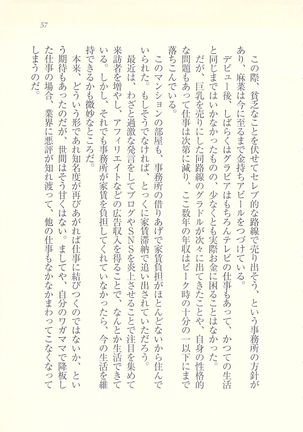 この際、貧乏なことを伏せてセレブ的な路線で売り出そう、という事務所の方針が
あり、麻菜は今に至るまで金持ちアピールをつづけている。
デビュー後、しばらくはグラビアはもちろんテレビの仕事もあって、かつての生活
と同じまではいかなかったものの、少なくとも実際お金に困ることはなかった。
だが、巨乳を売りにした同路線のグラドルが次々に出てきたことや、自身の性格的
な問題もあって仕事は次第に減り、ここ数年の年収はピーク時の十分の一以下にまで
落ちこんでいる。
このマンションの部屋も、事務所の借りあげで家賃負担がほとんどないから住んで
いられた。もしそうでなければ、とっくに家賃滞納で追い出されていただろう。
最近は、わざと過激な発言をしてブログやSNSを炎上させることで注目を集めて
来訪者を増やし、アフィリエイトなどの広告収入を得ることで、なんとか生活できて
いる。しかし、それでも事務所が家賃を負担してくれていなかったら、今の生活を維
持できるかも微妙なところだ。
本来、どういう形であれ知名度が再びあがれば仕事に結びつくのではないか、とい
う期待もあったのだが、世間はそう甘くはない。ましてや、自分のワガママで降板し
た仕事の場合、業界に悪評が知れ渡って、他の仕事もなかなかまわってこなくなって
しまうのだ。
57